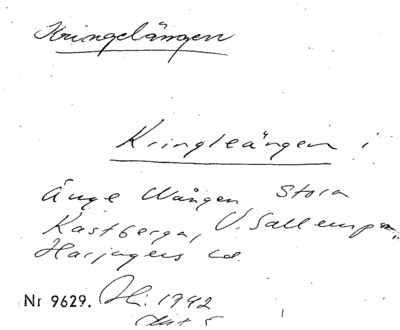 Kringelängen
Kringleängen i
Änge Wången, Stora
Kastberga, V. Sallerup
Harjagers hd.
Nr 9629. 1742